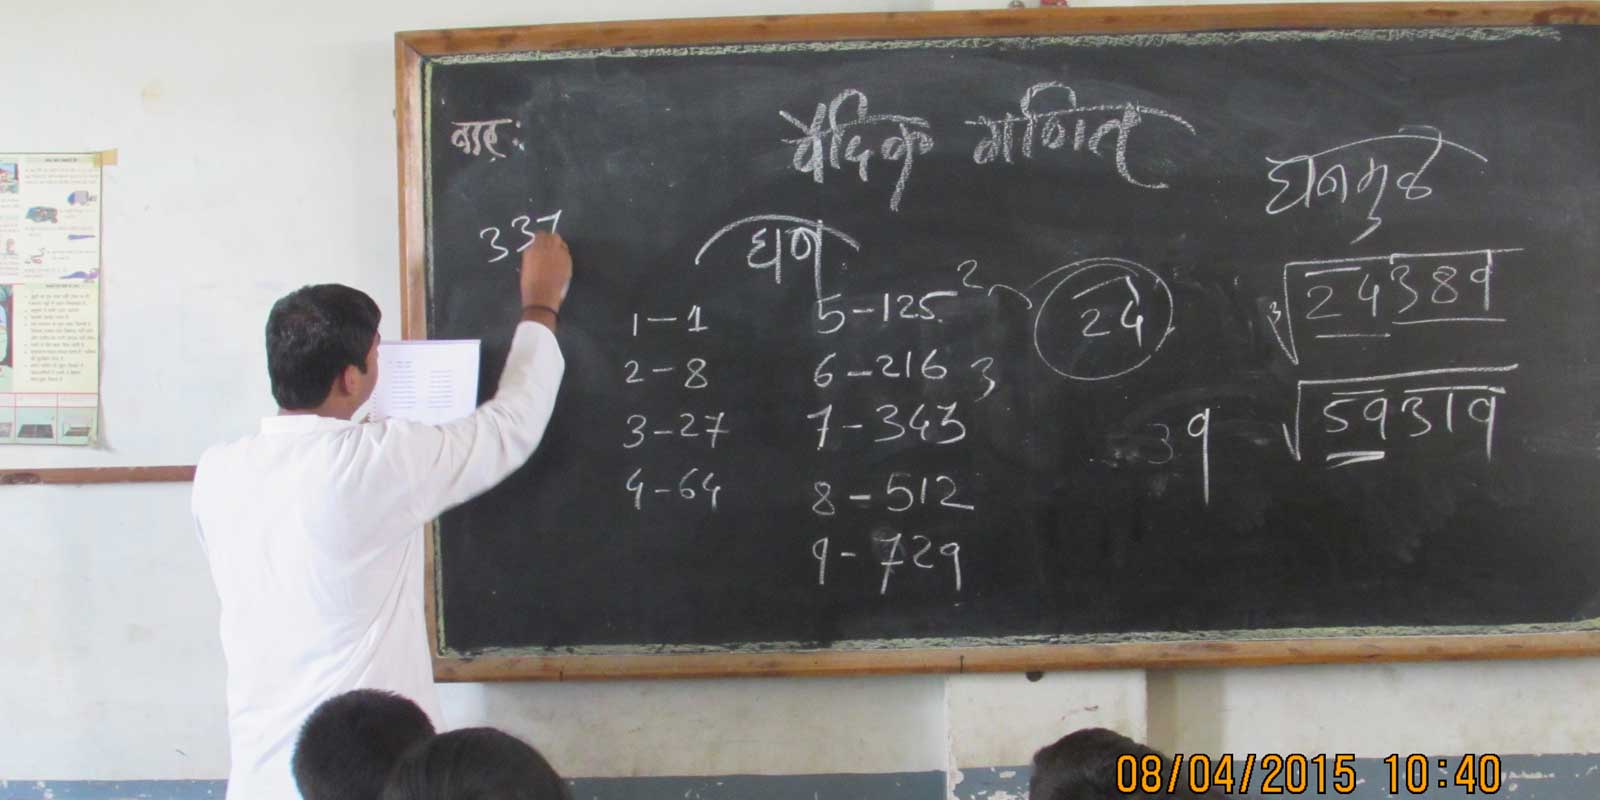 वार :
वैदिक गणित
घनमुळ
337
घन
1-1
2-8
3-27
4-64
5-125
6-216
7-343
8-512
9-729
2
3
3√24389
39
√59319
08/04/2015 10:40